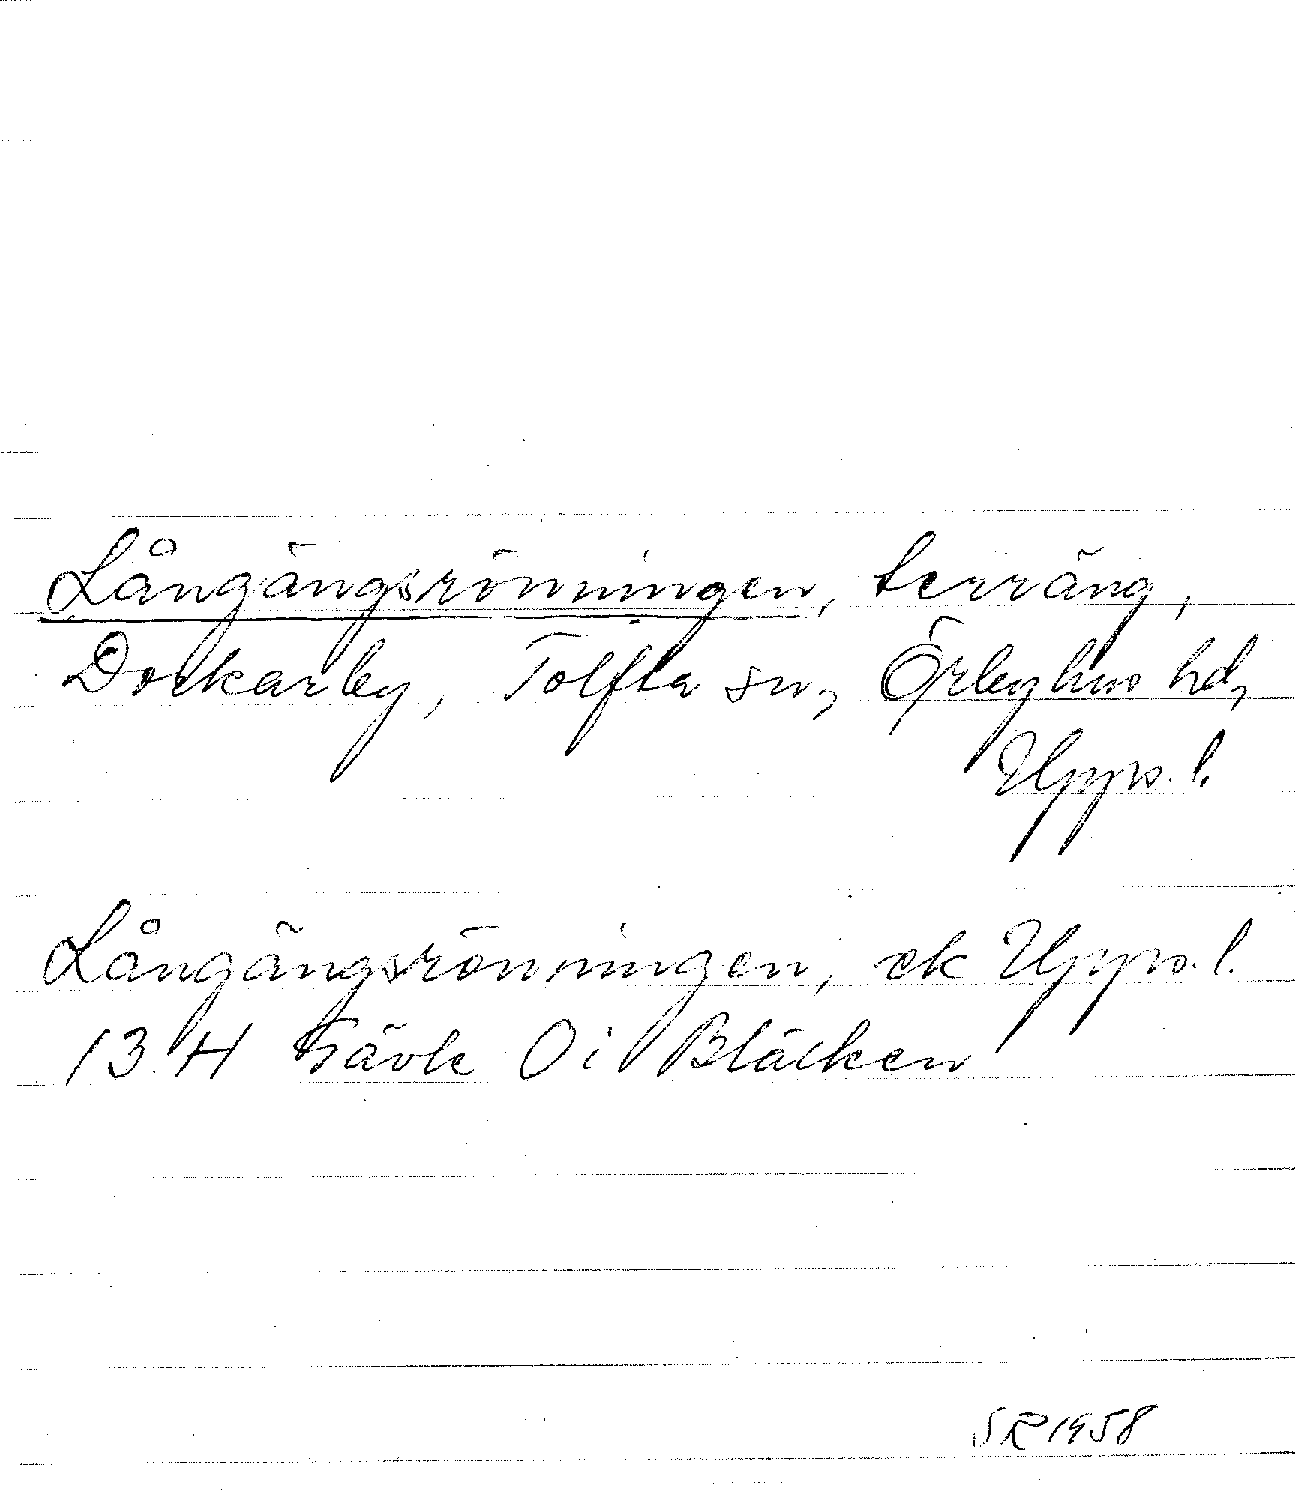 Långängsrönningen, terräng,
Dockarby, Tolfta sn, Örbyhus hd,
Upps. l.
Långängsrönningen, ek Upps. l.
13 H Gävle Öi Bläcken
SR 1958